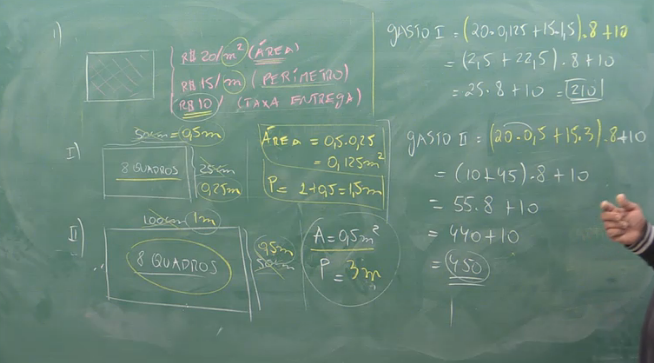 1)
R$ 20/m² (ÁREA)
R$ 15/m (PERÍMETRO)
R$ 10/ (TAXA ENTREGA)
I)
50cm = 0,5m
8 QUADROS
25cm
0,25m
ÁREA = 0,5.0,25
= 0,125m²
P = 2+0,5=1,5m
II)
100cm 1m
8 QUADROS
0,5m
50cm
A = 0,5m²
P = 3m
GASTO I = (20.0,125+15.1,5).8+10
= (2,5 + 22,5).8+10
= 25.8 + 10 = 210
GASTO II = (20.0,5 + 15.3).8+10
= (10+45).8+10
= 55.8 +10
= 440+10
= 450